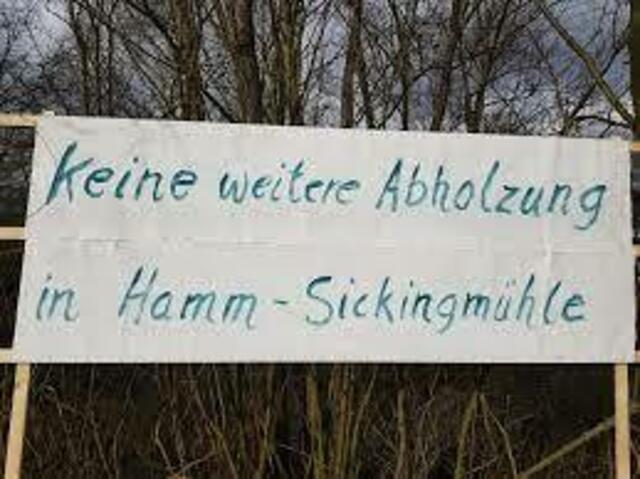 Keine weitere Abholzung
in Hamm - Sickingmühle